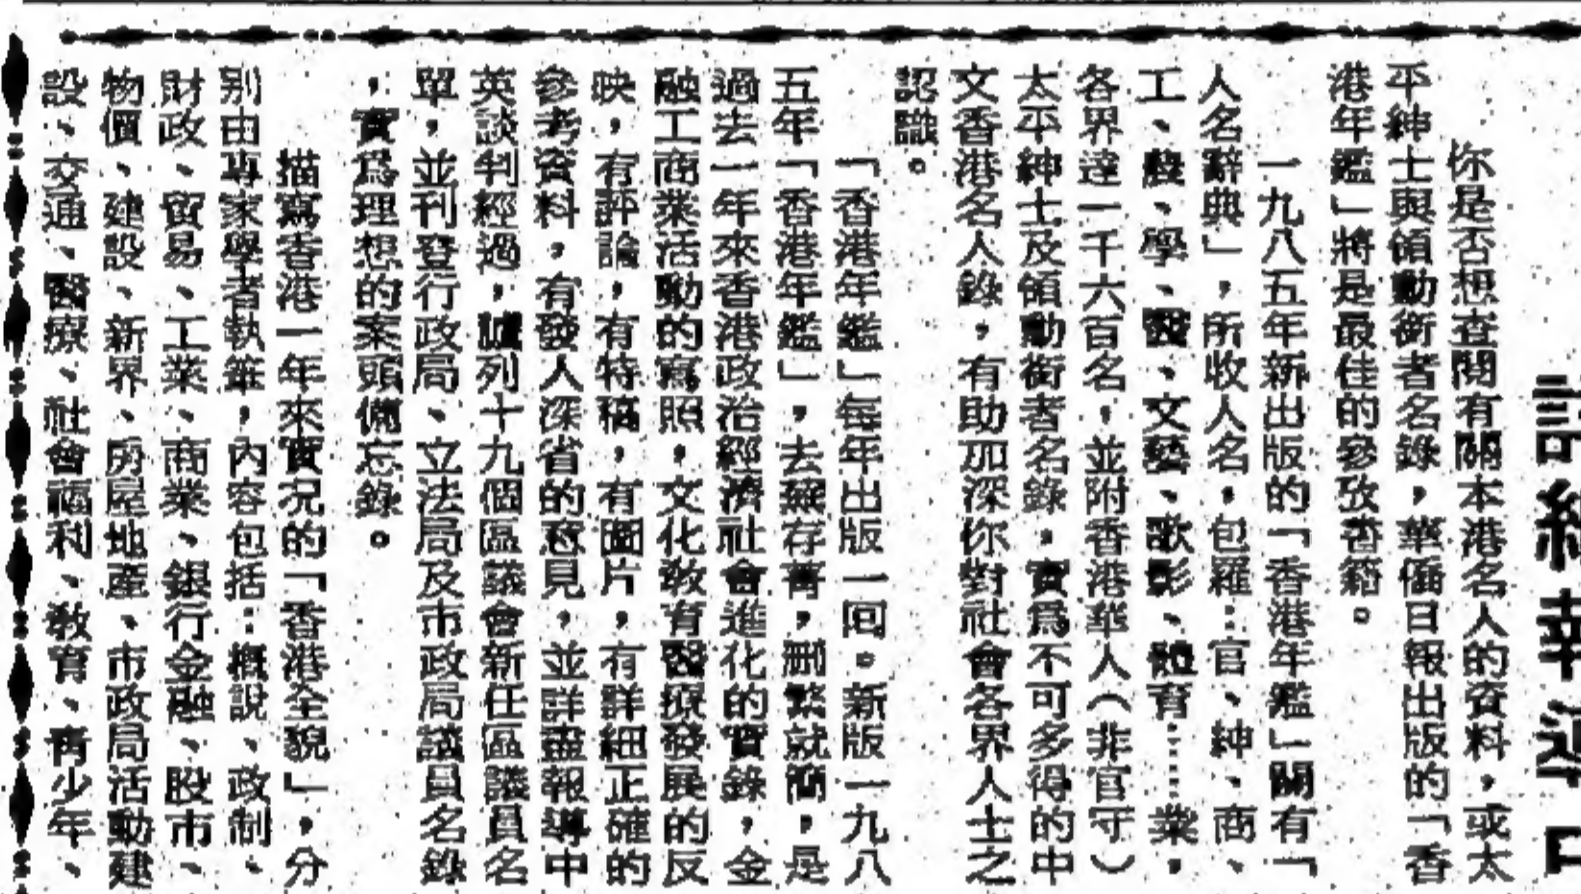 詳細報道
你是否想查閱有關本港名人的資料，或太
平紳士與領勳銜者名錄，華僑日報出版的「香
港年鑑」將是最佳的參攷書籍。
一九八五年新出版的「香港年鑑」闢有「
人名辭典」，所收人名，包羅：官、紳、商、
工、農、學、醫、文藝、歌影、體育……業，
各界達一千六百名，並附香港華人（非官守）
太平紳士及領勳銜者名錄，實爲不可多得的中
文香港名人錄，有助加深你對社會各界人士之
認識。
「香港年鑑」每年出版一回。新版一九八
五年「香港年鑑」，去蕪存菁，刪繁就簡，是
過去一年來香港政治經濟社會進化的實錄，金
融工商業活動的寫照，文化敎育醫療發展的反
映，有評論，有特稿，有圖片，有詳細正確的
參考資料，有發人深省的意見，並詳盡報導中
英談判經過，臚列十九個區議會新任區議員名
單，並刊登行政局、立法局及市政局議員名錄
，實爲理想的案頭備忘錄。
描寫香港一年來實况的「香港全貌」，分
别由專家學者執筆，內容包括：概說、政制、
財政、貿易、工業、商業、銀行金融、股市、
物價、建設、新界、房屋地產、市政局活動建
設、交通、醫療、社會福利、敎育、靑少年、